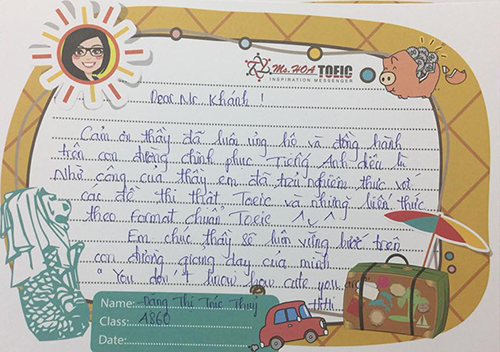 Ms. HOA TOEIC
INSPIRATION MESSENGER
Dear Mr. Khánh !
Cảm ơn thầy đã luôn ủng hộ và đồng hành
trên con đường chinh phục Tiếng Anh
Nhờ công của thầy em đã trải nghiệm thực với
các đề thi thật Toeic và những kiến thức
theo Format chuẩn Toeic ^ v ^
Em chúc thầy sẽ luôn vững bước trên
con đường giảng dạy của mình
" You don't know how cute you are "
Name: Đặng Thị Thúy
Class: A860
Date: